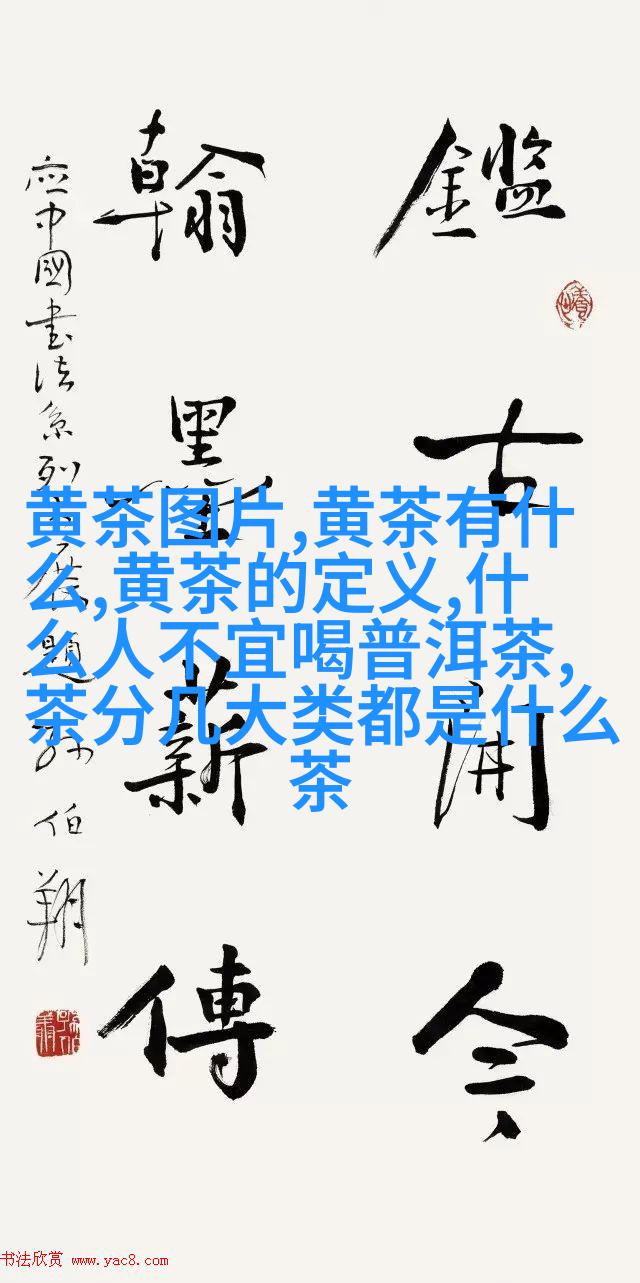 鑑古開今
翰墨薪傳
應中國書法系列展題孫伯翔
黄茶图片,黄茶有什
么,黄茶的定义,什
么人不宜喝普洱茶,
茶分几大类都是什么
茶
书法欣赏 www.yac8.com